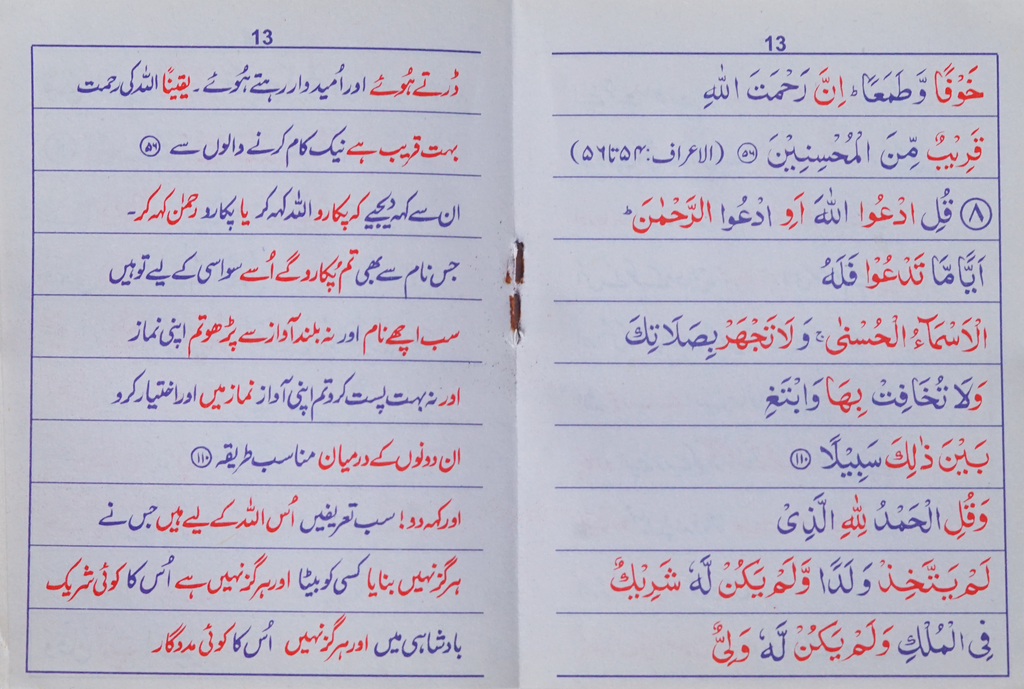 13
خَوْفًا وَّطَمَعًا ؕ اِنَّ رَحْمَتَ اللّٰهِ
قَرِيْبٌ مِّنَ الْمُحْسِنِيْنَ ۝۵۶ (الاعراف: ۵۴ تا ۵۶)
۸ قُلِ ادْعُوا اللّٰهَ اَوِ ادْعُوا الرَّحْمٰنَ ؕ
اَيًّا مَّا تَدْعُوْا فَلَهُ
الْاَسْمَآءُ الْحُسْنٰى ۚ وَلَا تَجْهَرْ بِصَلَاتِكَ
وَلَا تُخَافِتْ بِهَا وَابْتَغِ
بَيْنَ ذٰلِكَ سَبِيْلًا ۝۱۱۰
وَقُلِ الْحَمْدُ لِلّٰهِ الَّذِيْ
لَمْ يَتَّخِذْ وَلَدًا وَّلَمْ يَكُنْ لَّهٗ شَرِيْكٌ
فِي الْمُلْكِ وَلَمْ يَكُنْ لَّهٗ وَلِيٌّ
13
ڈرتے ہُوئے اور اُمیدوار رہتے ہُوئے۔ یقیناً اللہ کی رحمت
بہت قریب ہے نیک کام کرنے والوں سے ۝۵۶
ان سے کہہ دیجیے کہ پکارو اللہ کہہ کر یا پکارو رحمٰن کہہ کر۔
جس نام سے بھی تم پُکارو گے اُسے سو اسی کے لیے تو ہیں
سب اچھے نام اور نہ بلند آواز سے پڑھو تم اپنی نماز
اور نہ بہت پست کرو تم اپنی آواز نماز میں اور اختیار کرو
ان دونوں کے درمیان مناسب طریقہ ۝۱۱۰
اور کہہ دو! سب تعریفیں اُس اللہ کے لیے ہیں جس نے
ہرگز نہیں بنایا کسی کو بیٹا اور ہرگز نہیں ہے اُس کا کوئی شریک
بادشاہی میں اور ہرگز نہیں اُس کا کوئی مددگار